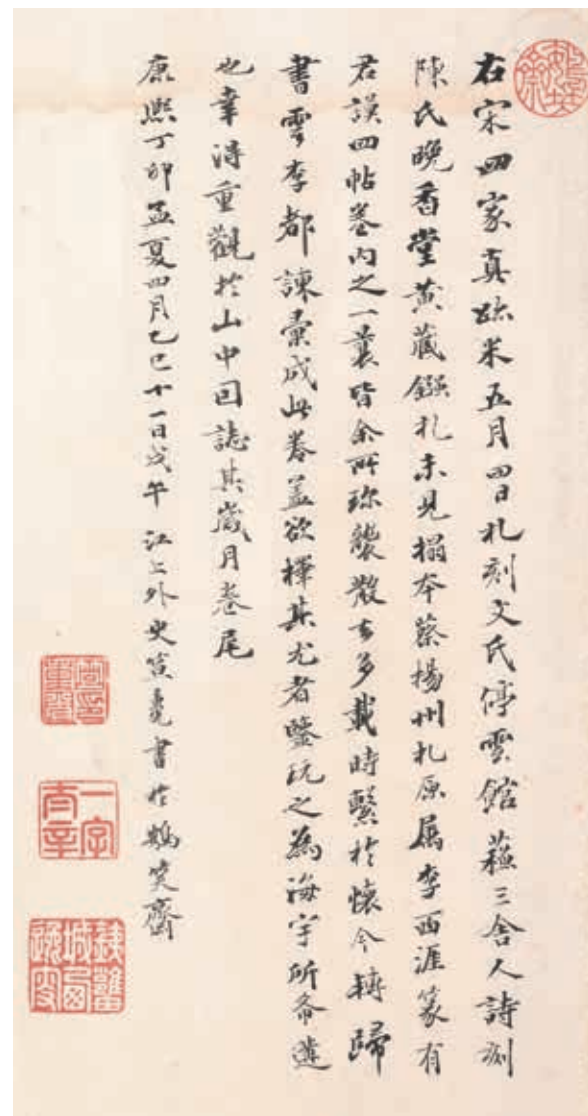 右宋四家真跡米五月四日札刻文氏停雲館蘇三舍人詩刻
陳氏晚香堂黃藏鏹札未見搨本蔡揚州札原屬李西涯篆有
君謨四帖卷內之一曩皆余所珍襲散去多載時縈於懷今轉歸
書雲李都諫彙成此卷蓋欲擇其尤者鑒玩之為海宇所希遘
也幸得重觀於山中因誌其歲月卷尾
康熙丁卯孟夏四月乙巳十一日戊午 江上外史笪重光書於笑齋
笪印重光
一字在辛
鐵甕城西逸叟